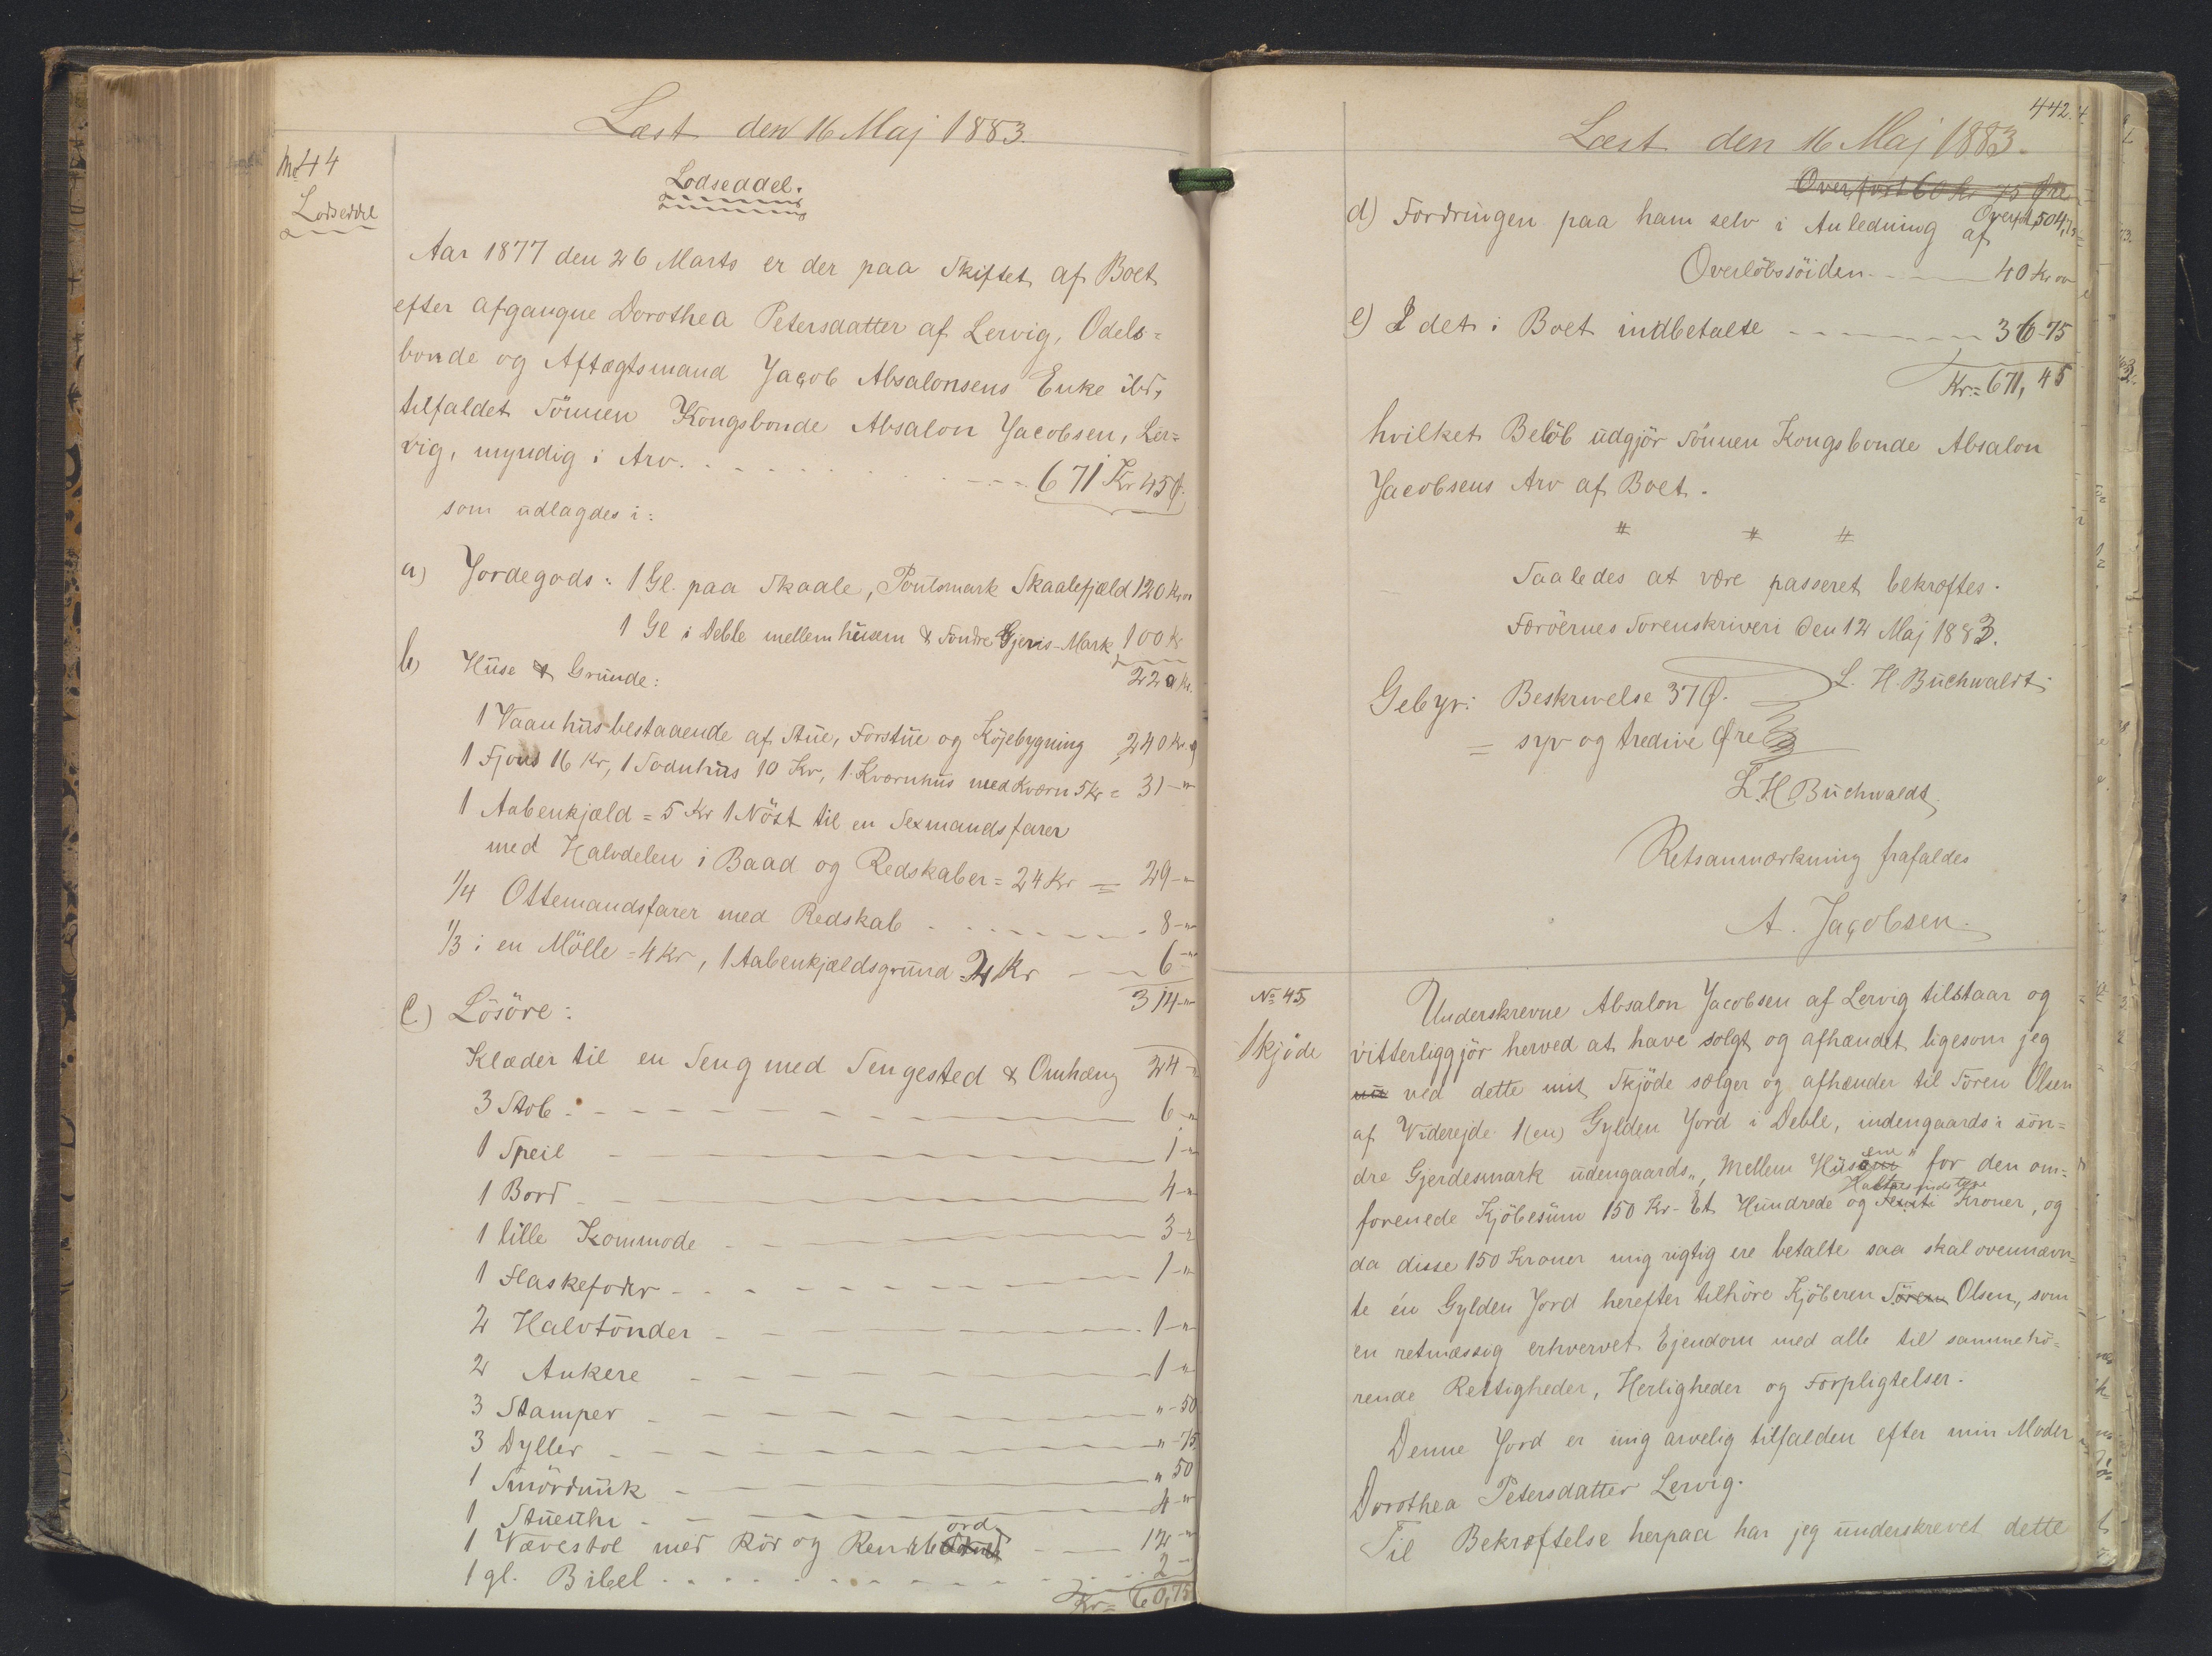 Læst den 16 Maj 1883.
No 44
Lodseddel
Lodseddel.
Aar 1877 den 26 Marts er der paa Skiftet af Boet
efter afgangne Dorothea Petersdatter af Lervig, Odels=
bonde og Aftægtsmand Jacob Absalonsens Enke ibd,
tilfaldet Sönnen Kongsbonde Absalon Jacobsen, Ler=
vig, myndig i Arv. 671 Kr 45 Ø.
som udlagdes i:
a) Jordegods: 1 Gl. paa Skaale, Pontsmark Skaalefjæld 120 Kr "
1 Gl i Deble mellem husem & Söndre Gjeris-Mark 100 Kr
220 Kr.
b) Huse & Grunde:
1 Vaanhus bestaaende af Stue, Forstue og Köjebygning 240 Kr. "
1 Fjøus 16 Kr, 1 Sodnhus 10 Kr, 1 Kværnhus med Kværn 5 Kr = 31 - "
1 Aabenkjæld = 5 Kr 1 Nöst til en Sexmandsfarer
med Halvdelen i Baad og Redskaber = 24 Kr = 29 - "
1/4 Ottemandsfarer med Redskab 8 - "
1/3 i en Mölle = 4 Kr, 1 Aabenkjældsgrund 2 Kr 6 "
314 - "
C.) Lösöre:
Klæder til en Seng med Sengested & Omhæng 24 - "
3 Stob 6 - "
1 Speil 1 - "
1 Bord 4 - "
1 lille Kommode 3 - "
1 Flaskefoder 1 - "
2 Halvtönder 1 - "
2 Ankere 1 - "
3 Stamper " - 50
3 Dyller " - 75
1 Smördunk " 50
1 Stueuhr 4 - "
1 Vævestol med Rör og Rendebord 12 - "
1 gl. Bibel 2 -
Kr = 60,75
442.
Læst den 16 Maj 1883.
Overfört 60 Kr 75 Øre
d) Fordringen paa ham selv i Anledning af
Overlöbssöiden 40 Kr "
e) I det i Boet indbetalte 36 - 75
Kr = 671,45
hvilket Belöb udgjör Sönnen Kongsbonde Absalon
Jacobsens Arv af Boet.
" " "
Saaledes at være passeret bekræftes.
Færöernes Sorenskriveri den 12 Maj 1883.
L. H. Buchwaldt
Gebyr: Beskrivelse 37 Ø.
= syv og tredive Øre
L. H. Buchwaldt
Retsanmærkning frafaldes
A. Jacobsen.
No 45
Skjöde
Underskrevne Absalon Jacobsen af Lervig tilstaar og
vitterliggjör herved at have solgt og afhændet ligesom jeg
nu ved dette mit Skjöde sælger og afhænder til Sören Olsen
af Viderejde 1 (en) Gylden Jord i Deble, indengaards i sön=
dre Gjerdesmark udengaards „ Mellem Husene " for den om=
forenede Kjöbesum 150 Kr - Et Hundrede og Halvtredsindstyve Kroner, og
da disse 150 Kroner mig rigtig ere betalte saa skal ovennævn=
te én Gylden Jord herefter tilhöre Kjöberen Sören Olsen, som
en retmæssig erhvervet Ejendom med alle til sammehö=
rende Rettigheder, Herligheder og Forpligtelser.
Denne Jord er mig arvelig tilfalden efter min Moder
Dorothea Petersdatter Lervig.
Til Bekræftelse herpaa har jeg underskrevet dette